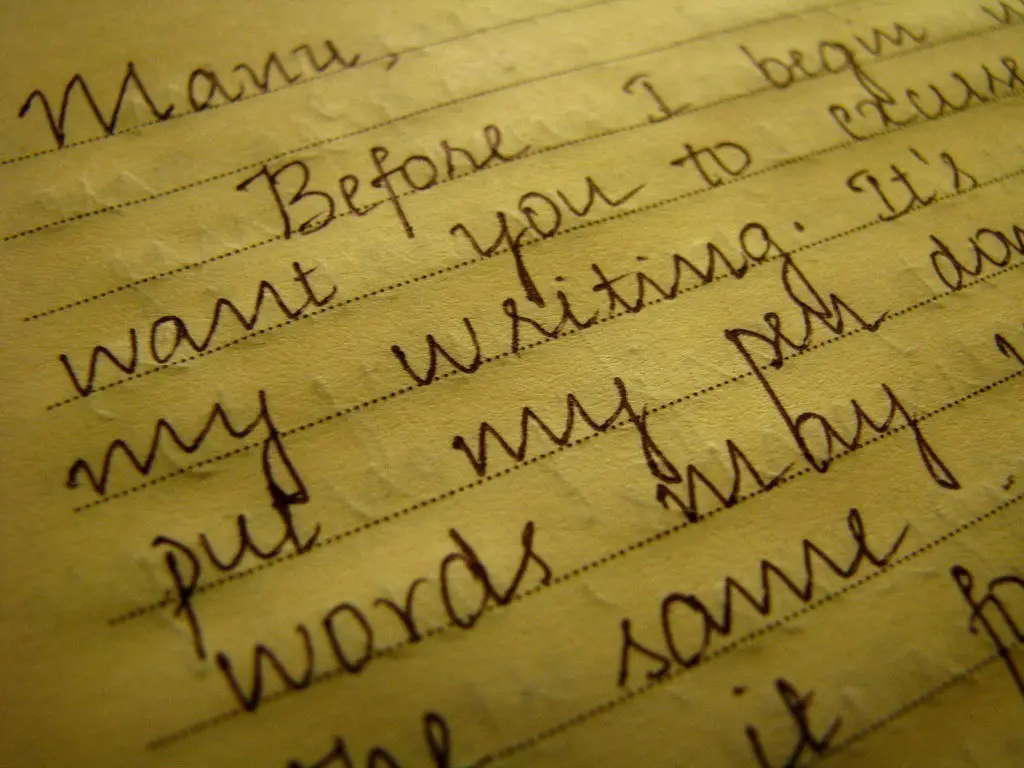 Manu,
Before I begin
want you to excuse
my writing. It's
put my pen
words in by
same
it